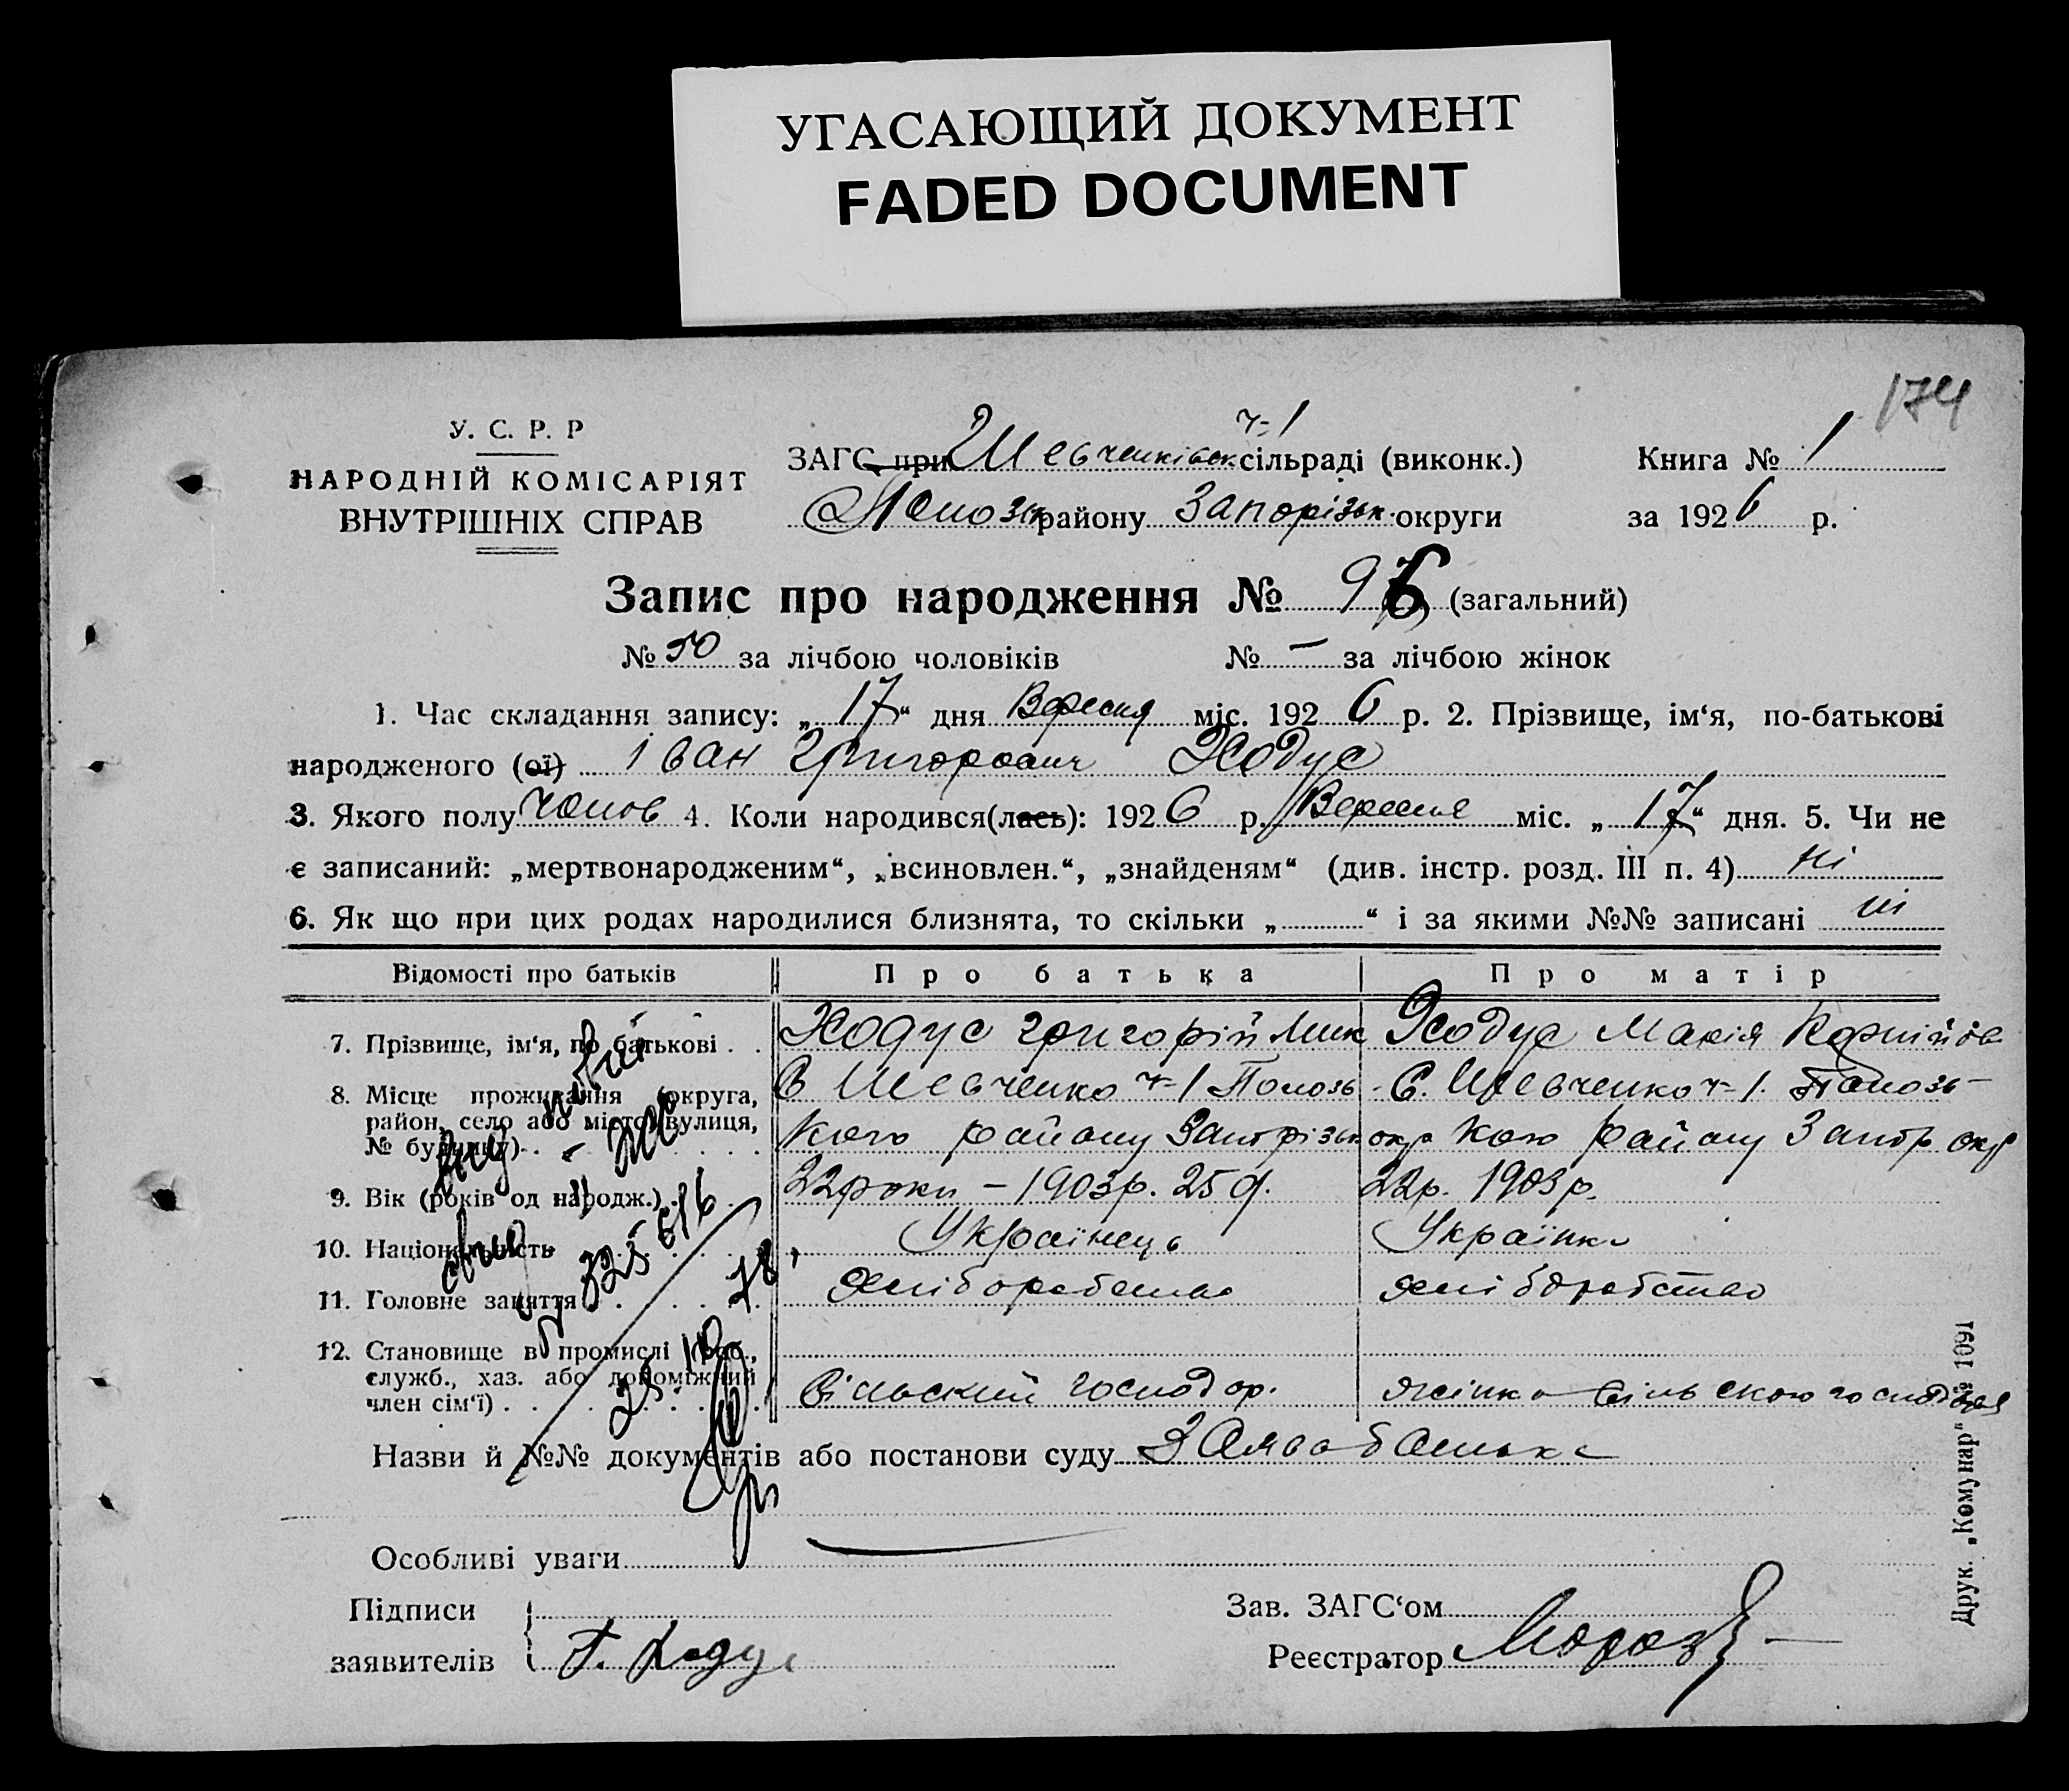 УГАСАЮЩИЙ ДОКУМЕНТ
FADED DOCUMENT
174
У. С. Р. Р
НАРОДНІЙ КОМІСАРІЯТ
ВНУТРІШНІХ СПРАВ
ЗАГС при Шевченківськ. ч-1 сільраді (виконк.)
Полозьк району Запорізьк. округи
Книга № 1
за 1926 р.
Запис про народження № 96 (загальний)
№ 50 за лічбою чоловіків № — за лічбою жінок
1. Час складання запису: „17“ дня Вересня міс. 1926 р. 2. Прізвище, ім‘я, по-батькові
народженого (ої) Іван Григорович Ходус
3. Якого полу чолов 4. Коли народився(лась): 1926 р. Вересня міс. „17“ дня. 5. Чи не
є записаний: „мертвонародженим“, „всиновлен.“, „знайденям“ (див. інстр. розд. III п. 4) ні
6. Як що при цих родах народилися близнята, то скільки „ “ і за якими №№ записані ні
Відомості про батьків Про батька Про матір
7. Прізвище, ім‘я, по батькові . . Ходус Григорій Мик Ходус Марія Корнійов
8. Місце проживання (округа,
район, село або місто, вулиця,
№ будинку)
С Шевченко ч-1 Полозь- С. Шевченко ч-1. Полозь-
кого району Запорізьк окр кого району Запор окр
9. Вік (років од народж.) . 22 роки – 1903р. 22р. 1903р.
10. Національність Українець Українка
11. Головне заняття хліборобство хліборобство
12. Становище в промислі (роб.,
служб., хаз. або допоміжний
член сім‘ї) . Сільский господар. жінка сільського господаря
Назви й №№ документів або постанови суду Заява батька
Особливі уваги
Підписи
заявителів Г. Ходус
Зав. ЗАГС‘ом
Реєстратор Мороз
Друк. „Комунар“ № 1091